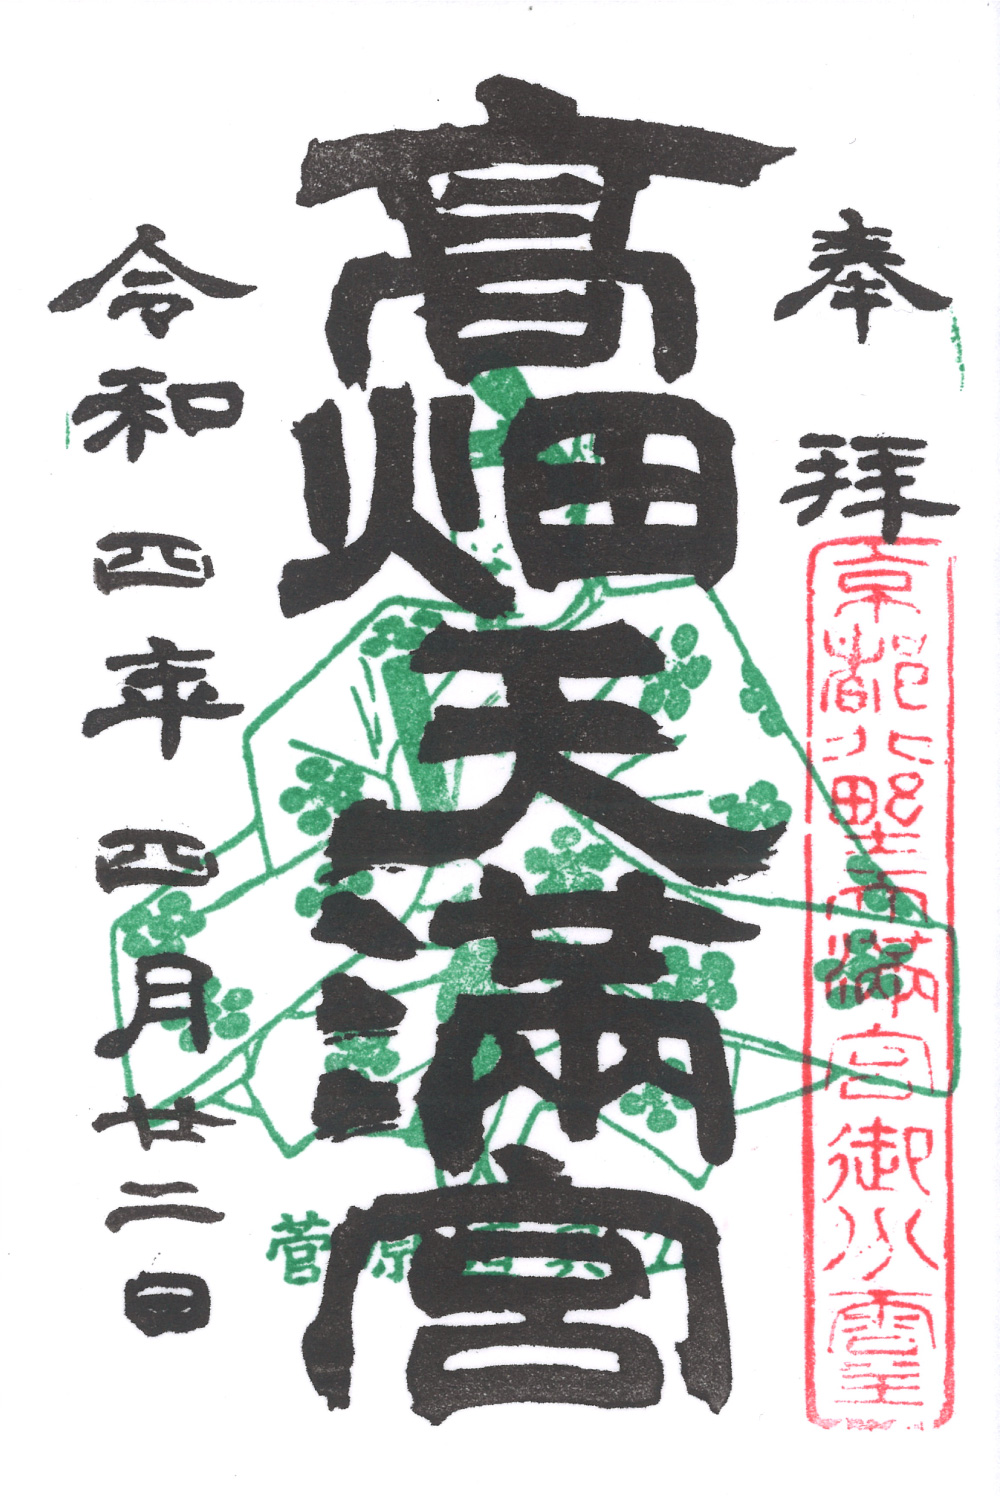 奉拜
京都北野天満宮御分霊
髙畑天満宮
菅原道真公
令和四年四月廿二日